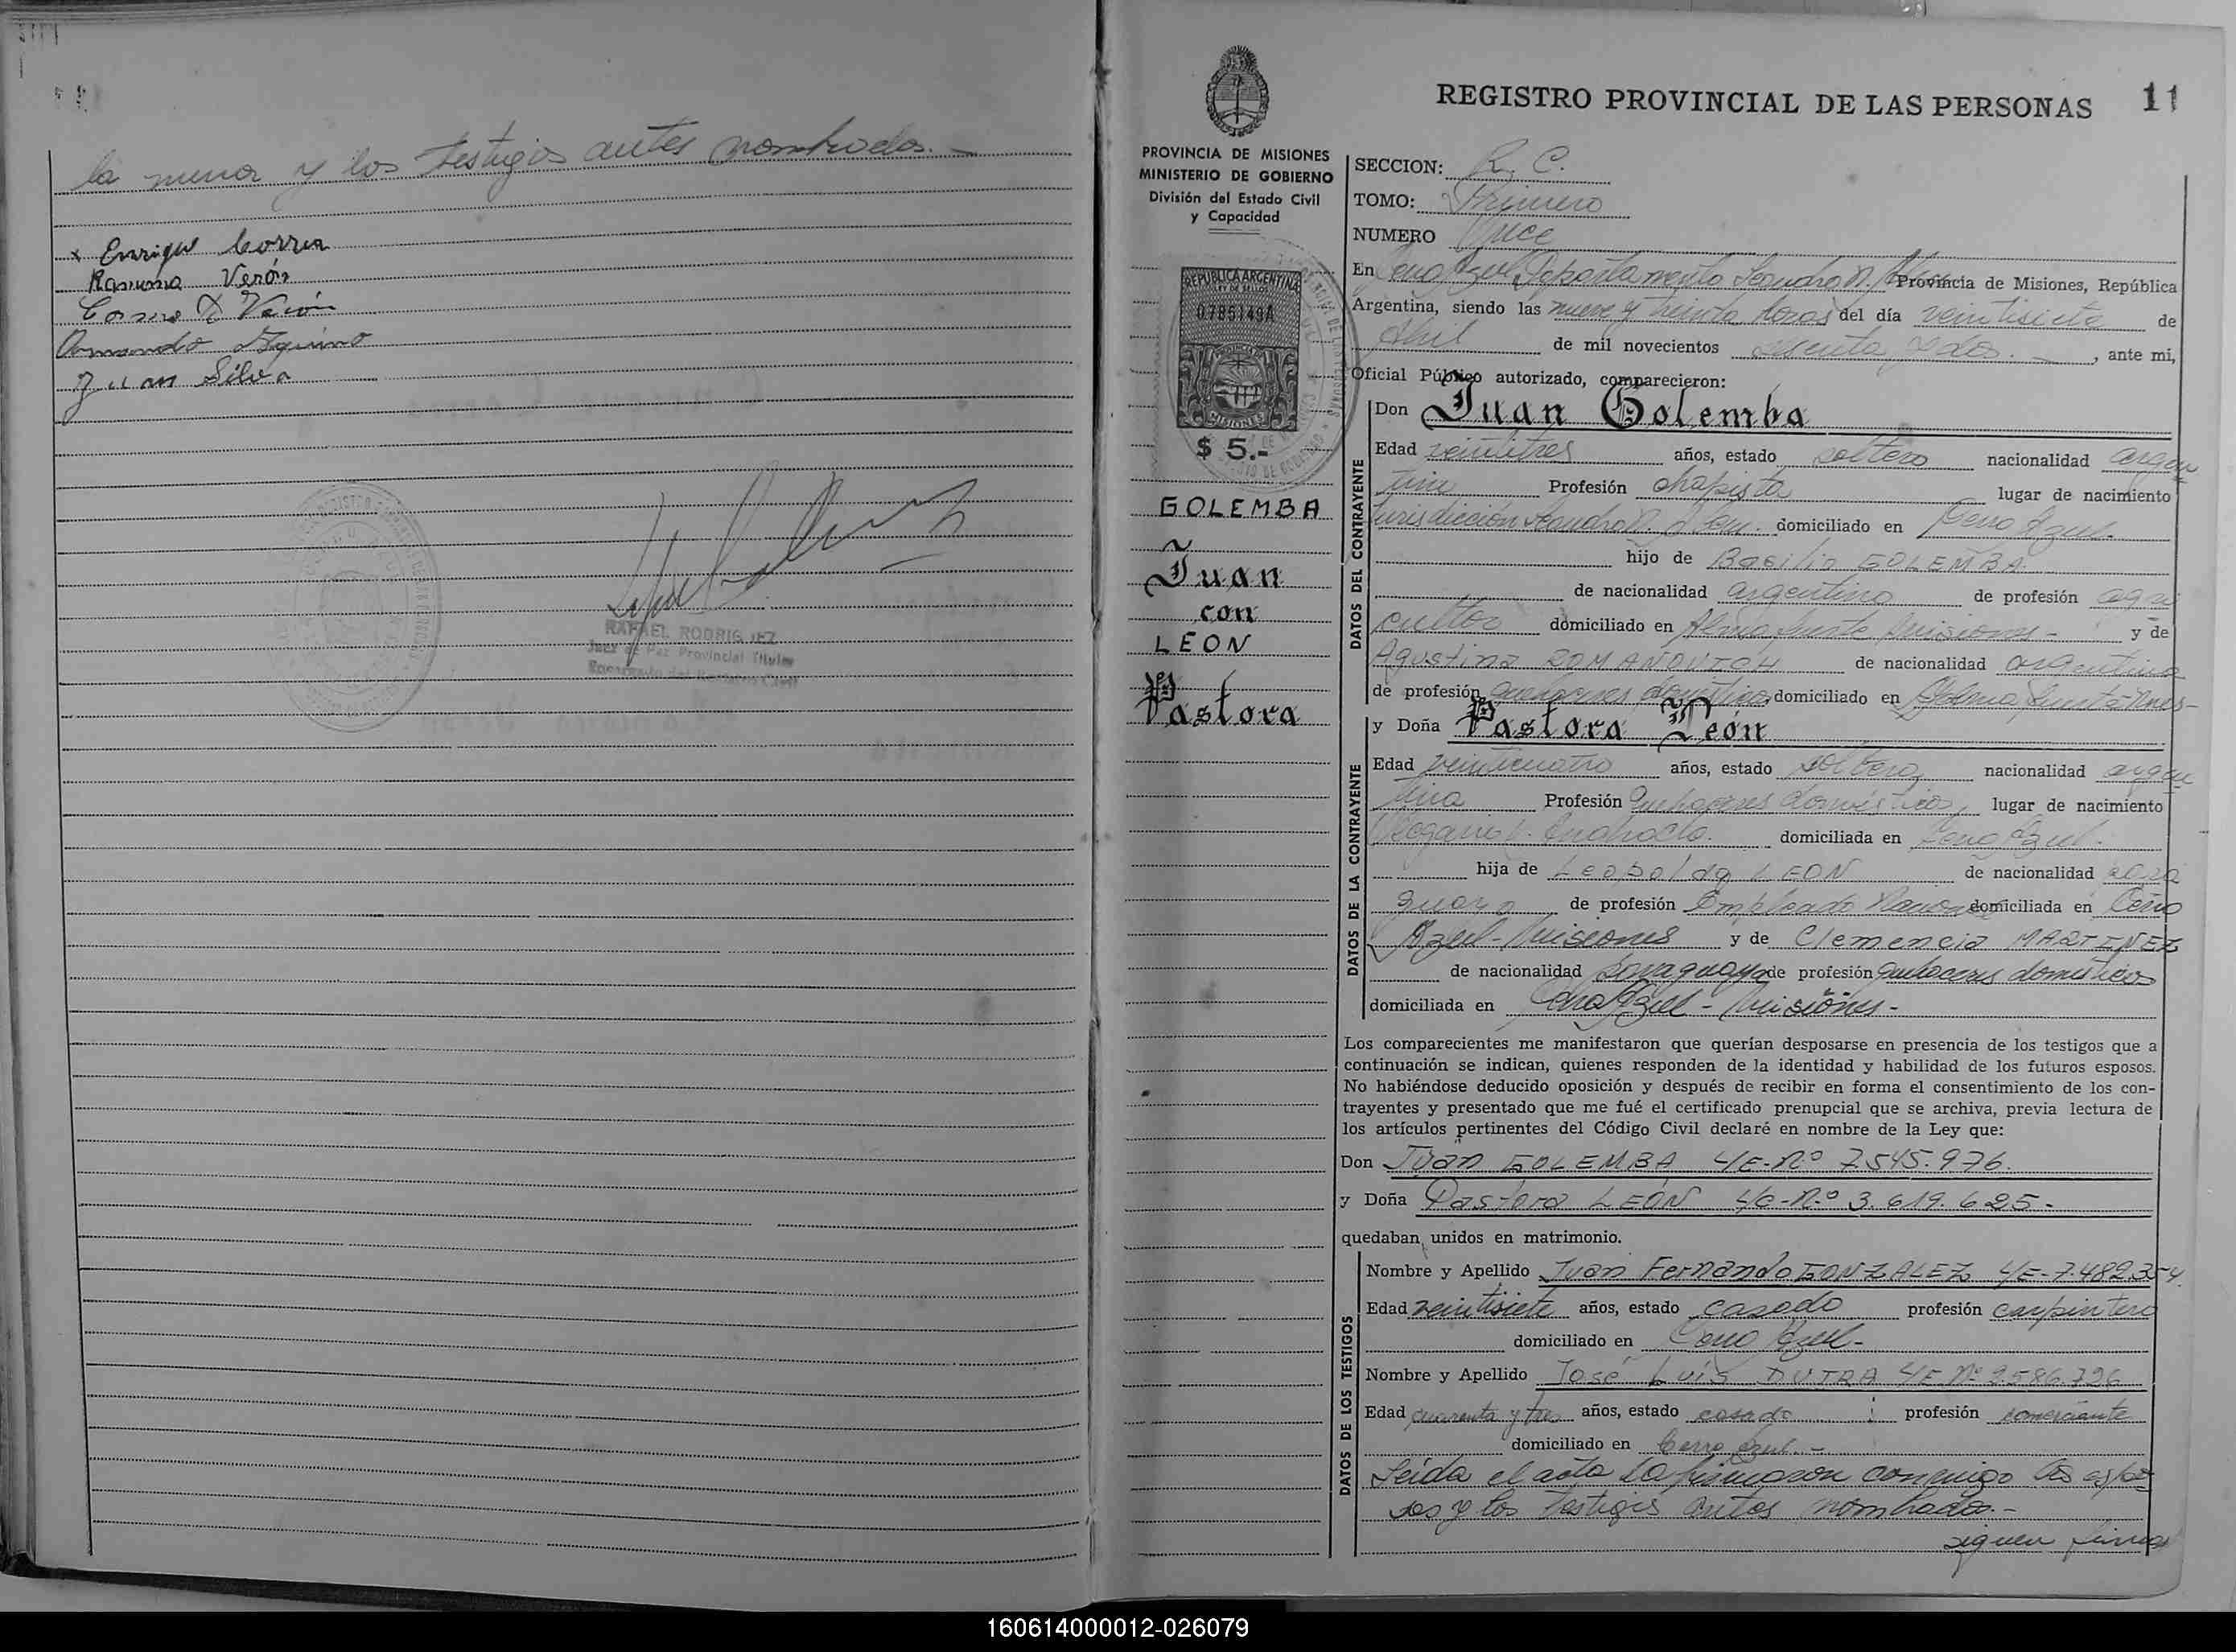 la menor y los testigos antes nombrados.-
x Enrique Correa
Ramona Verón
Verón
Armando Aquino
Juan Silva
RAFAEL RODRIGUEZ
Juez de Paz Provincial Titular
Encargado del Registro Civil
REGISTRO PROVINCIAL DE LAS PERSONAS 11
PROVINCIA DE MISIONES
MINISTERIO DE GOBIERNO
División del Estado Civil
y Capacidad
REPUBLICA ARGENTINA
LEY DE SELLOS
0785149A
MISIONES
$ 5.-
GOLEMBA
Juan
con
LEON
Pastora
SECCION: R. C.
TOMO: Primero
NUMERO Once
En Cerro Azul Departamento Leandro N. Alem Provincia de Misiones, República
Argentina, siendo las nueve y treinta horas del día veintisiete de
Abril de mil novecientos sesenta y dos.-, ante mi,
Oficial Público autorizado, comparecieron:
DATOS DEL CONTRAYENTE
Don Juan Golemba
Edad veintitres años, estado soltero nacionalidad argen
tina Profesión chapista lugar de nacimiento
Jurisdicción Leandro N. Alem. domiciliado en Cerro Azul.
hijo de Basilio GOLEMBA
de nacionalidad argentino de profesión agri
cultor domiciliado en Misiones - y de
Agustina ROMANOVICH de nacionalidad argentina
de profesión quehaceres domésticos domiciliado en
DATOS DE LA CONTRAYENTE
y Doña Pastora León
Edad veinticuatro años, estado soltera, nacionalidad argen
tina Profesión Quehaceres domésticos, lugar de nacimiento
domiciliada en Cerro Azul.
hija de Leopoldo LEON de nacionalidad para
guayo de profesión Empleado Nacional domiciliada en Cerro
Azul - Misiones y de Clemencia MARTINEZ
de nacionalidad paraguaya de profesión quehaceres domésticos
domiciliada en Cerro Azul - Misiones -
Los comparecientes me manifestaron que querían desposarse en presencia de los testigos que a
continuación se indican, quienes responden de la identidad y habilidad de los futuros esposos.
No habiéndose deducido oposición y después de recibir en forma el consentimiento de los con-
trayentes y presentado que me fué el certificado prenupcial que se archiva, previa lectura de
los artículos pertinentes del Código Civil declaré en nombre de la Ley que:
Don Juan GOLEMBA L/E-Nº 7.545.976.
y Doña Pastora LEÓN L/C-Nº 3.619.625.-
quedaban unidos en matrimonio.
DATOS DE LOS TESTIGOS
Nombre y Apellido Juan Fernando GONZALEZ L/E-7.482.354
Edad veintisiete años, estado casado profesión carpintero
domiciliado en Cerro Azul-
Nombre y Apellido José Luis DUTRA L/E Nº
Edad cuarenta y tres años, estado casado profesión comerciante
domiciliado en Cerro Azul.-
Leída el acta la firmaron conmigo los espo-
sos y los testigos antes nombrados.-
siguen firmas
160614000012-026079